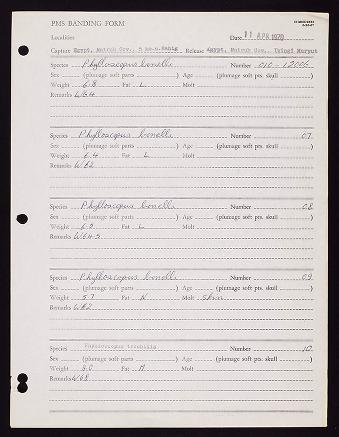 PMS BANDING FORM
Localities Date 11 APR 1970
Capture Egypt, Matruh Gov., Release Egypt, Matruh Gov.,
Species Phylloscopus bonelli Number 010-12006
Sex (plumage soft parts ) Age (plumage soft pts. skull )
Weight 6.8 Fat L Molt
Remarks W64
Species Phylloscopus bonelli Number 07
Sex (plumage soft parts ) Age (plumage soft pts. skull )
Weight 6.4 Fat L Molt
Remarks W62
Species Phylloscopus bonelli Number 08
Sex (plumage soft parts ) Age (plumage soft pts. skull )
Weight Fat L Molt
Remarks W64.5
Species Phylloscopus bonelli Number 09
Sex (plumage soft parts ) Age (plumage soft pts. skull )
Weight 5.7 Fat N Molt
Remarks W62
Species Phylloscopus Number 10
Sex (plumage soft parts ) Age (plumage soft pts. skull )
Weight 8.0 Fat M Molt
Remarks W68